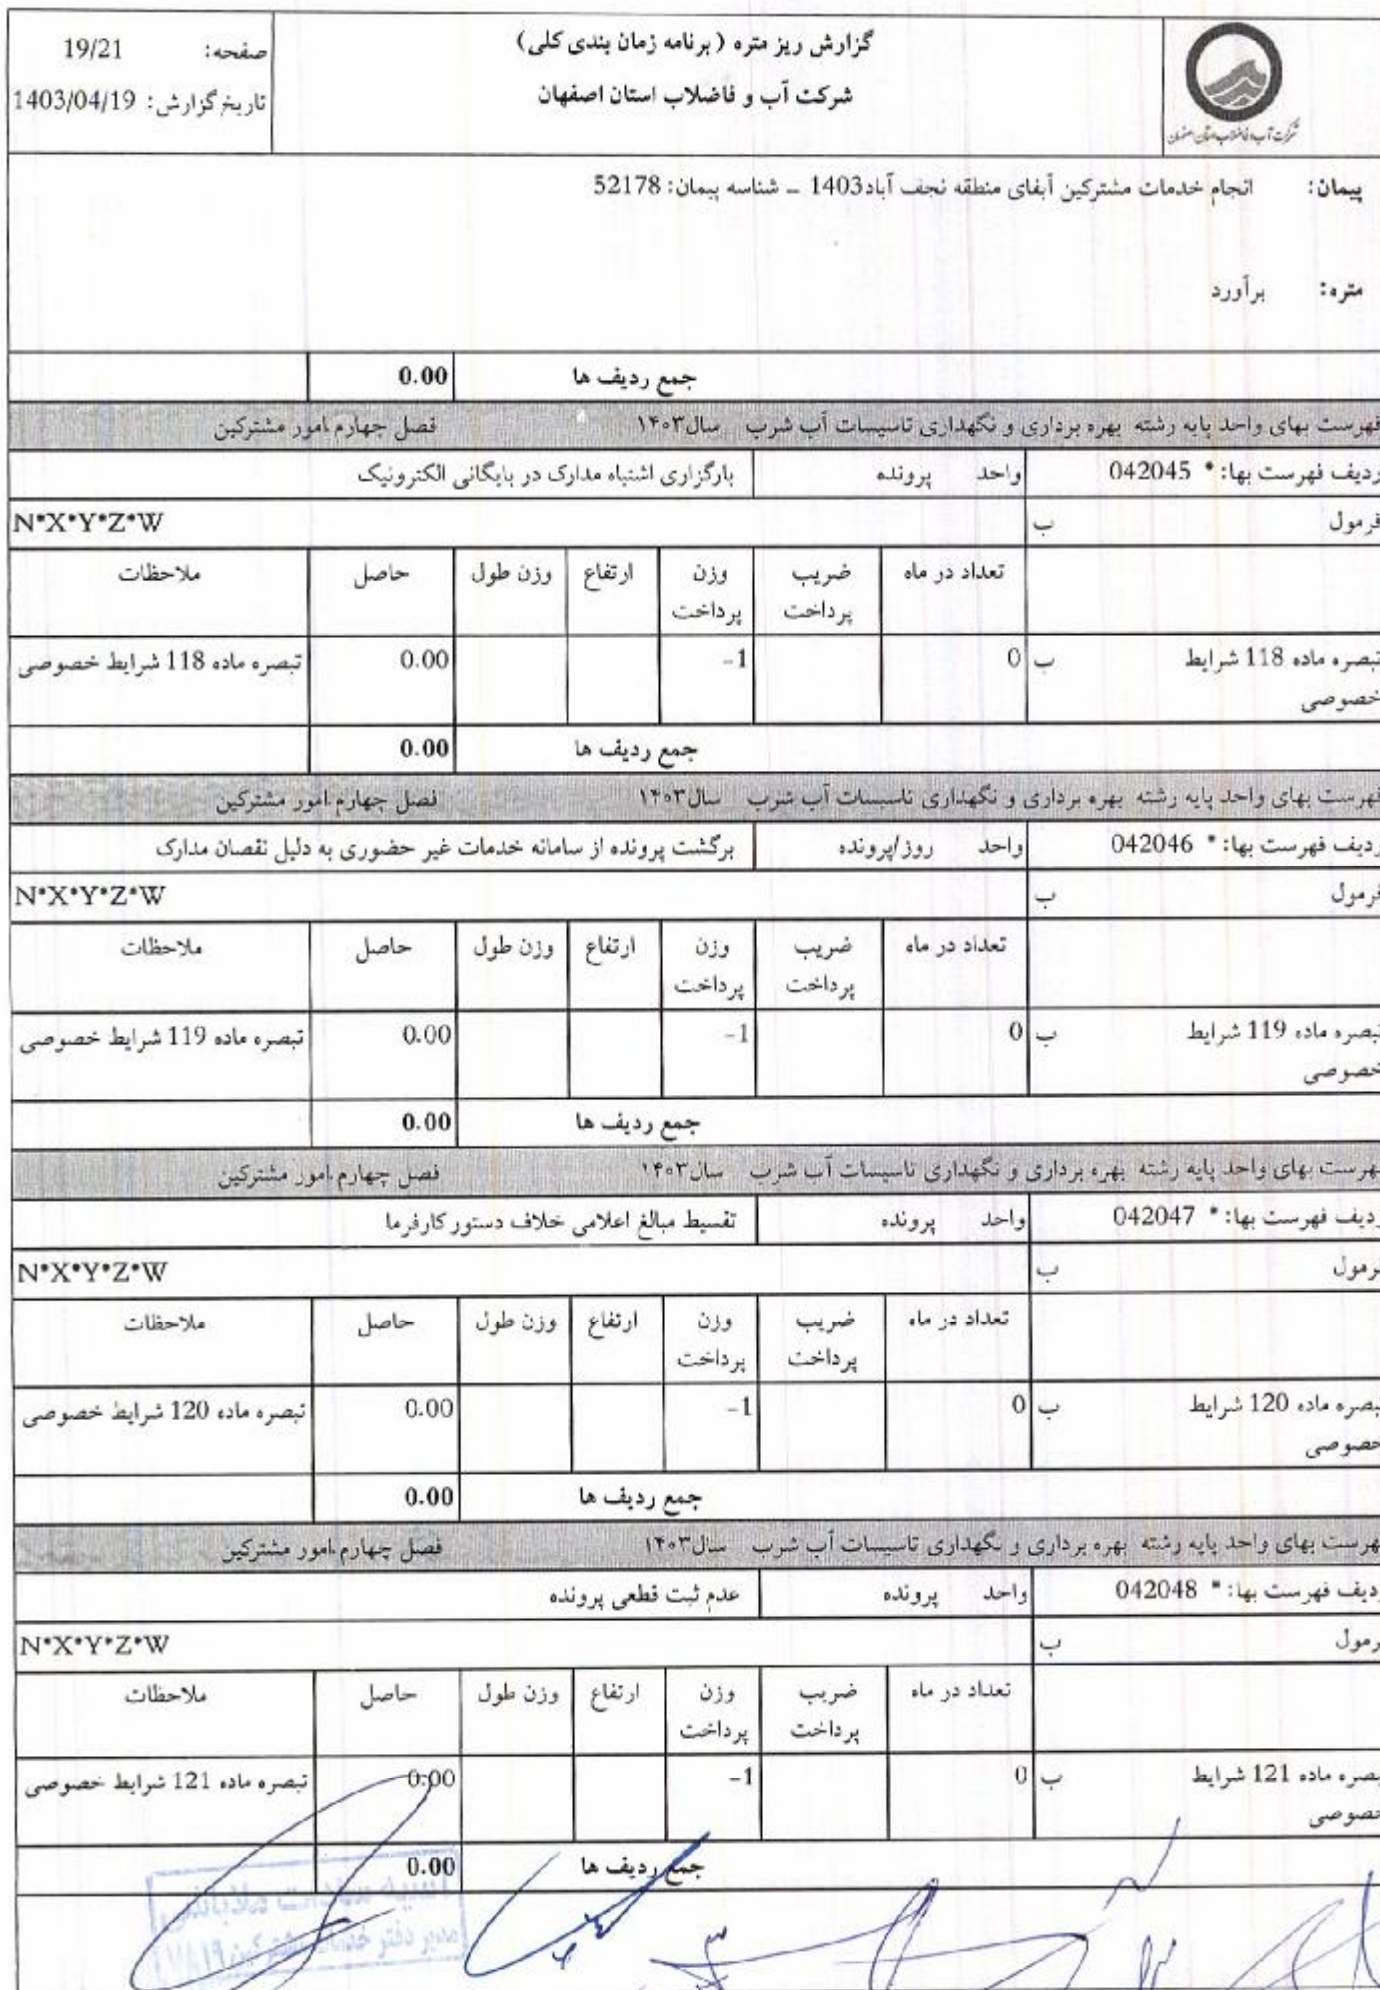 گزارش ریز متره ( برنامه زمان بندی کلی )
شرکت آب و فاضلاب استان اصفهان
صفحه: 19/21
تاریخ گزارش: 1403/04/19
شرکت آب و فاضلاب استان اصفهان
پیمان: انجام خدمات مشترکین آبفای منطقه نجف آباد1403 - شناسه پیمان: 52178
متره: برآورد
جمع ردیف ها 0.00
فهرست بهای واحد پایه رشته بهره برداری و نگهداری تاسیسات آب شرب سال۱۴۰۳ فصل چهارم.امور مشترکین
ردیف فهرست بها: * 042045 واحد پرونده بارگزاری اشتباه مدارک در بایگانی الکترونیک
فرمول ب N*X*Y*Z*W
تعداد در ماه ضریب پرداخت وزن پرداخت ارتفاع وزن طول حاصل ملاحظات
تبصره ماده 118 شرایط خصوصی ب 0 -1 0.00 تبصره ماده 118 شرایط خصوصی
جمع ردیف ها 0.00
فهرست بهای واحد پایه رشته بهره برداری و نگهداری تاسیسات آب شرب سال۱۴۰۳ فصل چهارم.امور مشترکین
ردیف فهرست بها: * 042046 واحد روز/پرونده برگشت پرونده از سامانه خدمات غیر حضوری به دلیل نقصان مدارک
فرمول ب N*X*Y*Z*W
تعداد در ماه ضریب پرداخت وزن پرداخت ارتفاع وزن طول حاصل ملاحظات
تبصره ماده 119 شرایط خصوصی ب 0 -1 0.00 تبصره ماده 119 شرایط خصوصی
جمع ردیف ها 0.00
فهرست بهای واحد پایه رشته بهره برداری و نگهداری تاسیسات آب شرب سال۱۴۰۳ فصل چهارم.امور مشترکین
ردیف فهرست بها: * 042047 واحد پرونده تقسیط مبالغ اعلامی خلاف دستور کارفرما
فرمول ب N*X*Y*Z*W
تعداد در ماه ضریب پرداخت وزن پرداخت ارتفاع وزن طول حاصل ملاحظات
تبصره ماده 120 شرایط خصوصی ب 0 -1 0.00 تبصره ماده 120 شرایط خصوصی
جمع ردیف ها 0.00
فهرست بهای واحد پایه رشته بهره برداری و نگهداری تاسیسات آب شرب سال۱۴۰۳ فصل چهارم.امور مشترکین
ردیف فهرست بها: * 042048 واحد پرونده عدم ثبت قطعی پرونده
فرمول ب N*X*Y*Z*W
تعداد در ماه ضریب پرداخت وزن پرداخت ارتفاع وزن طول حاصل ملاحظات
تبصره ماده 121 شرایط خصوصی ب 0 -1 0.00 تبصره ماده 121 شرایط خصوصی
جمع ردیف ها 0.00
مدیر دفتر خدمات مشترکین